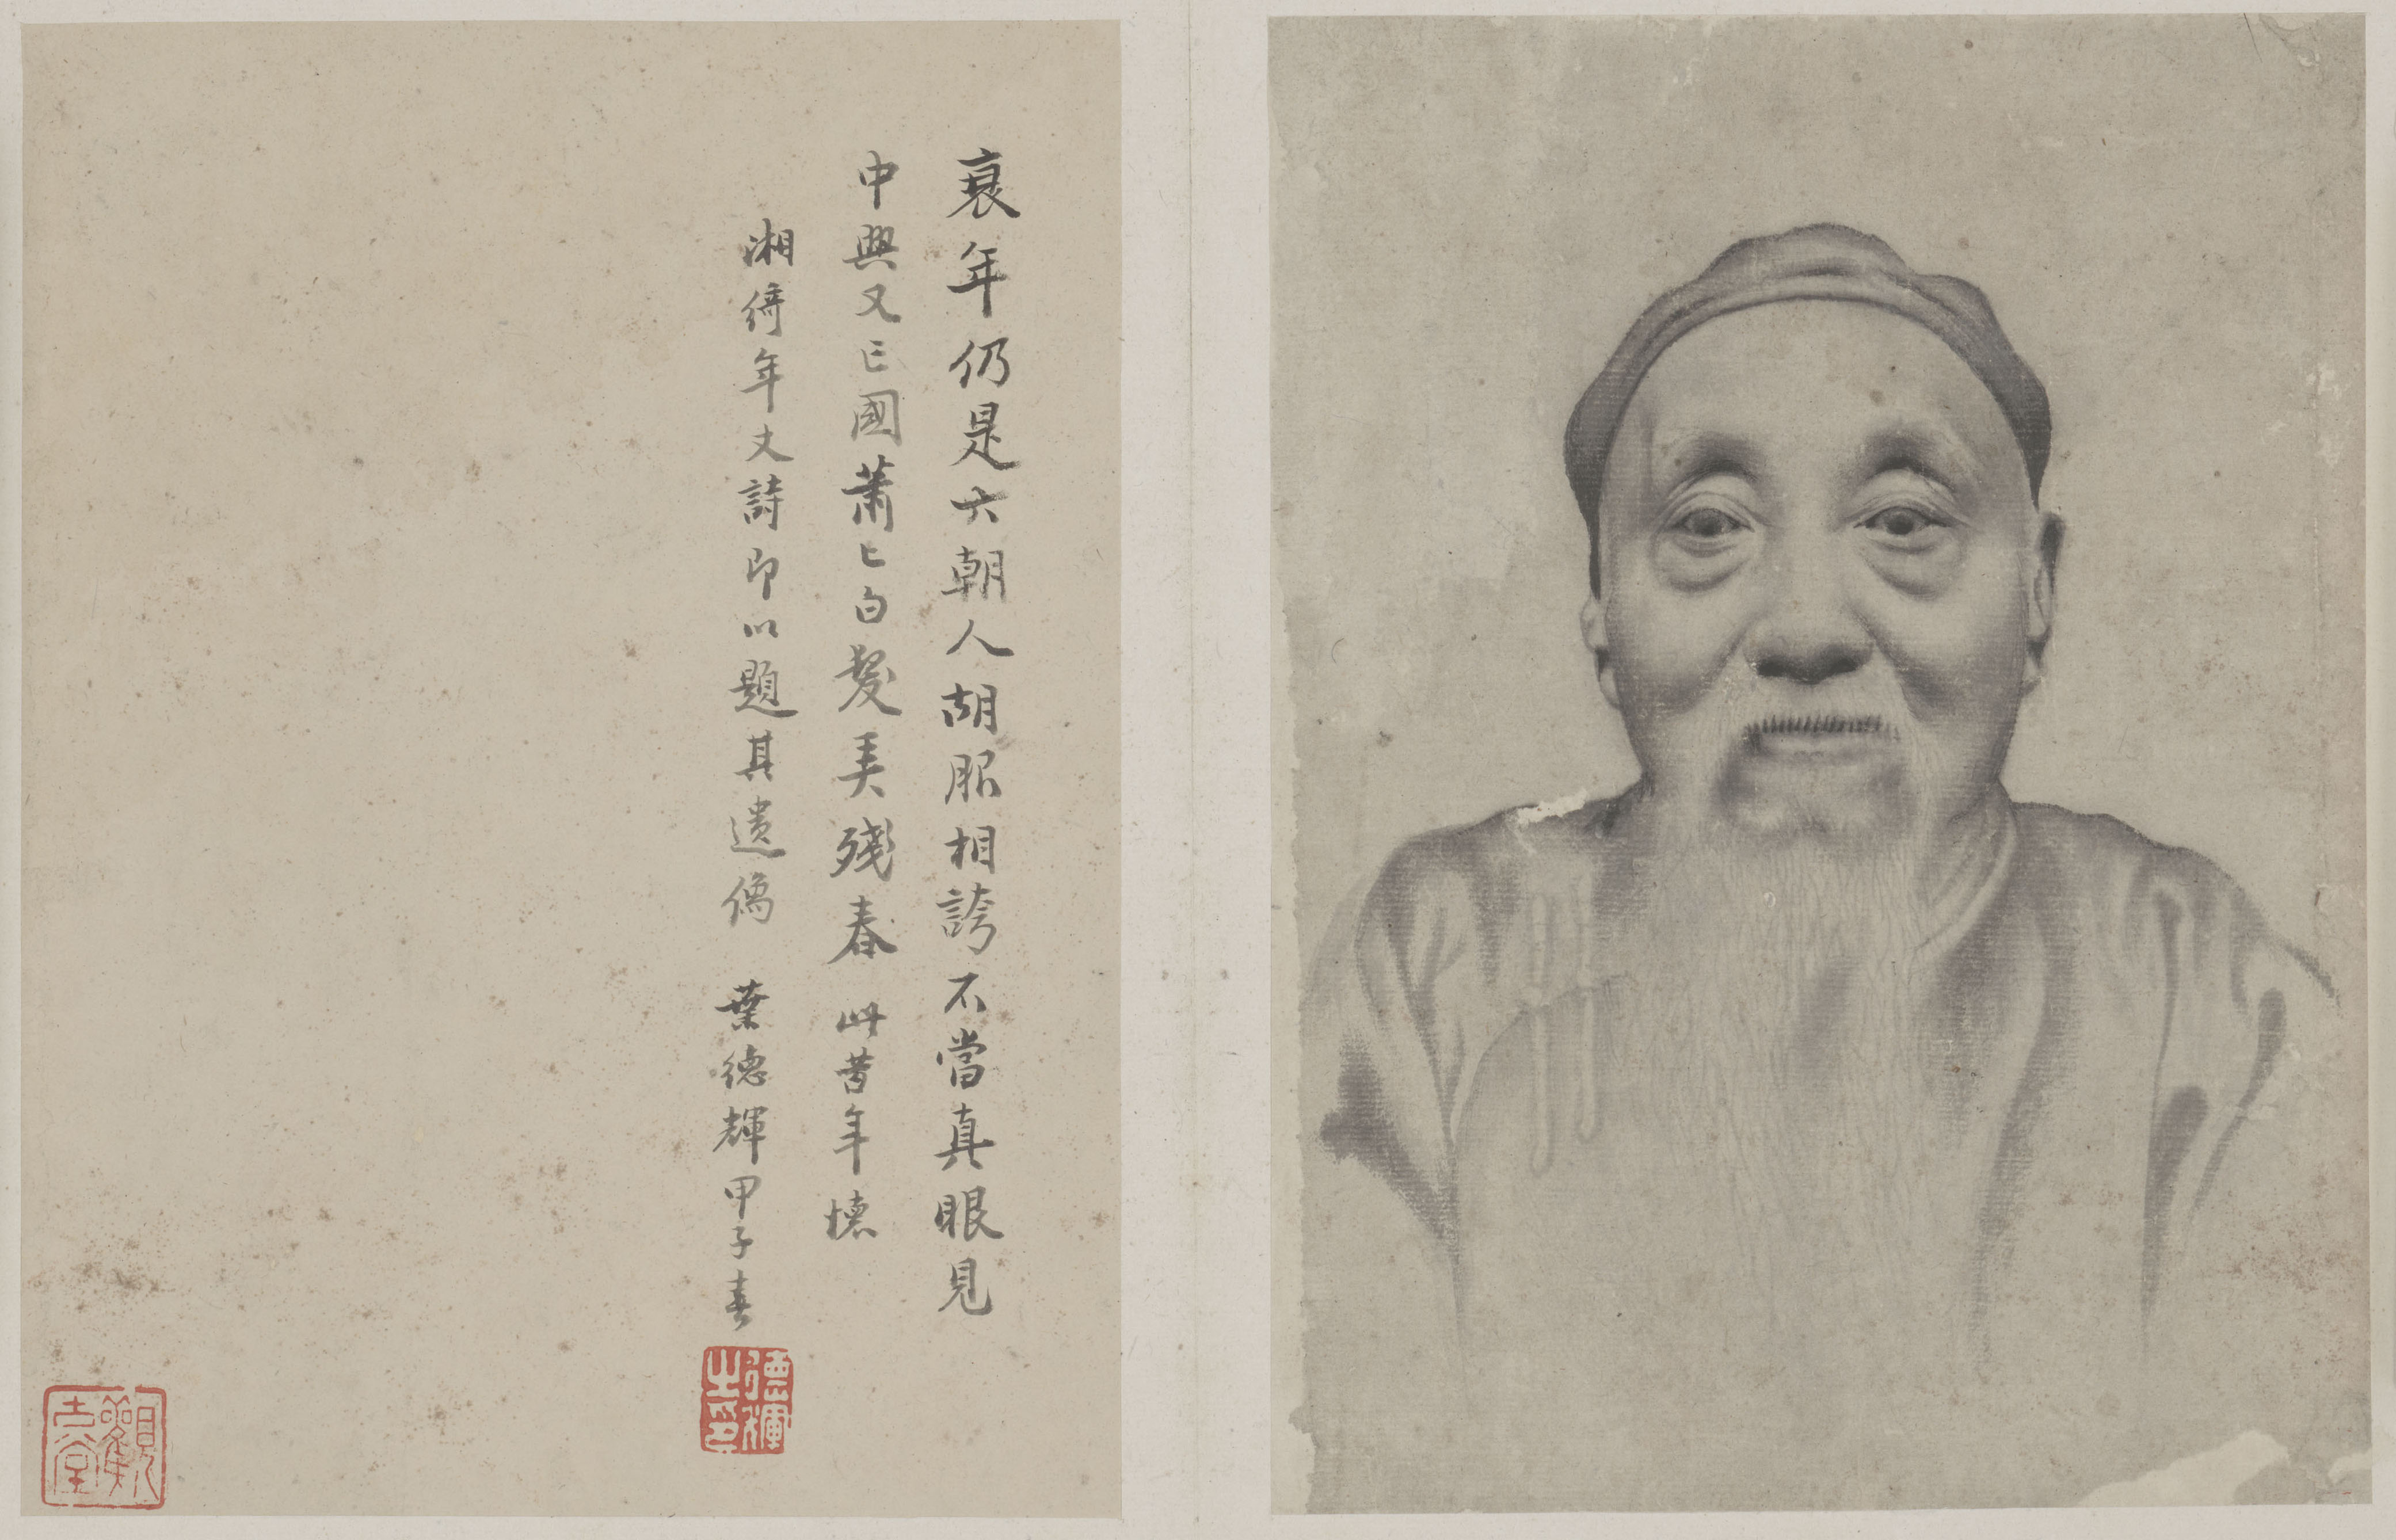 衰年仍是六朝人胡服相誇不當真眼見
中興又亡國蕭匕白髮美殘春 此昔年懷
湘綺年丈詩即以題其遺像 葉德輝甲子春
德輝之印
觀古堂